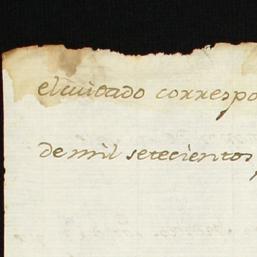 el cuitado correspo
de mil setecientos